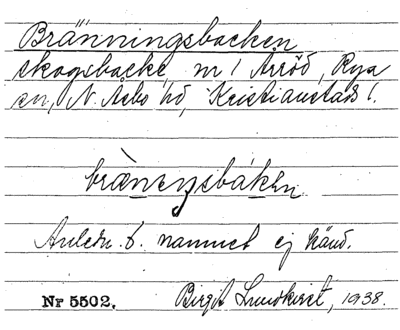 Bränningsbacken
skogsbacke, n / Arröd, Rya
sn, N. Åsbo hd, Kristianstads l.
brὰneŋsbákən
Anledn. t. namnet ej känd.
Nr 5502. Birgit Lundkvist, 1938.